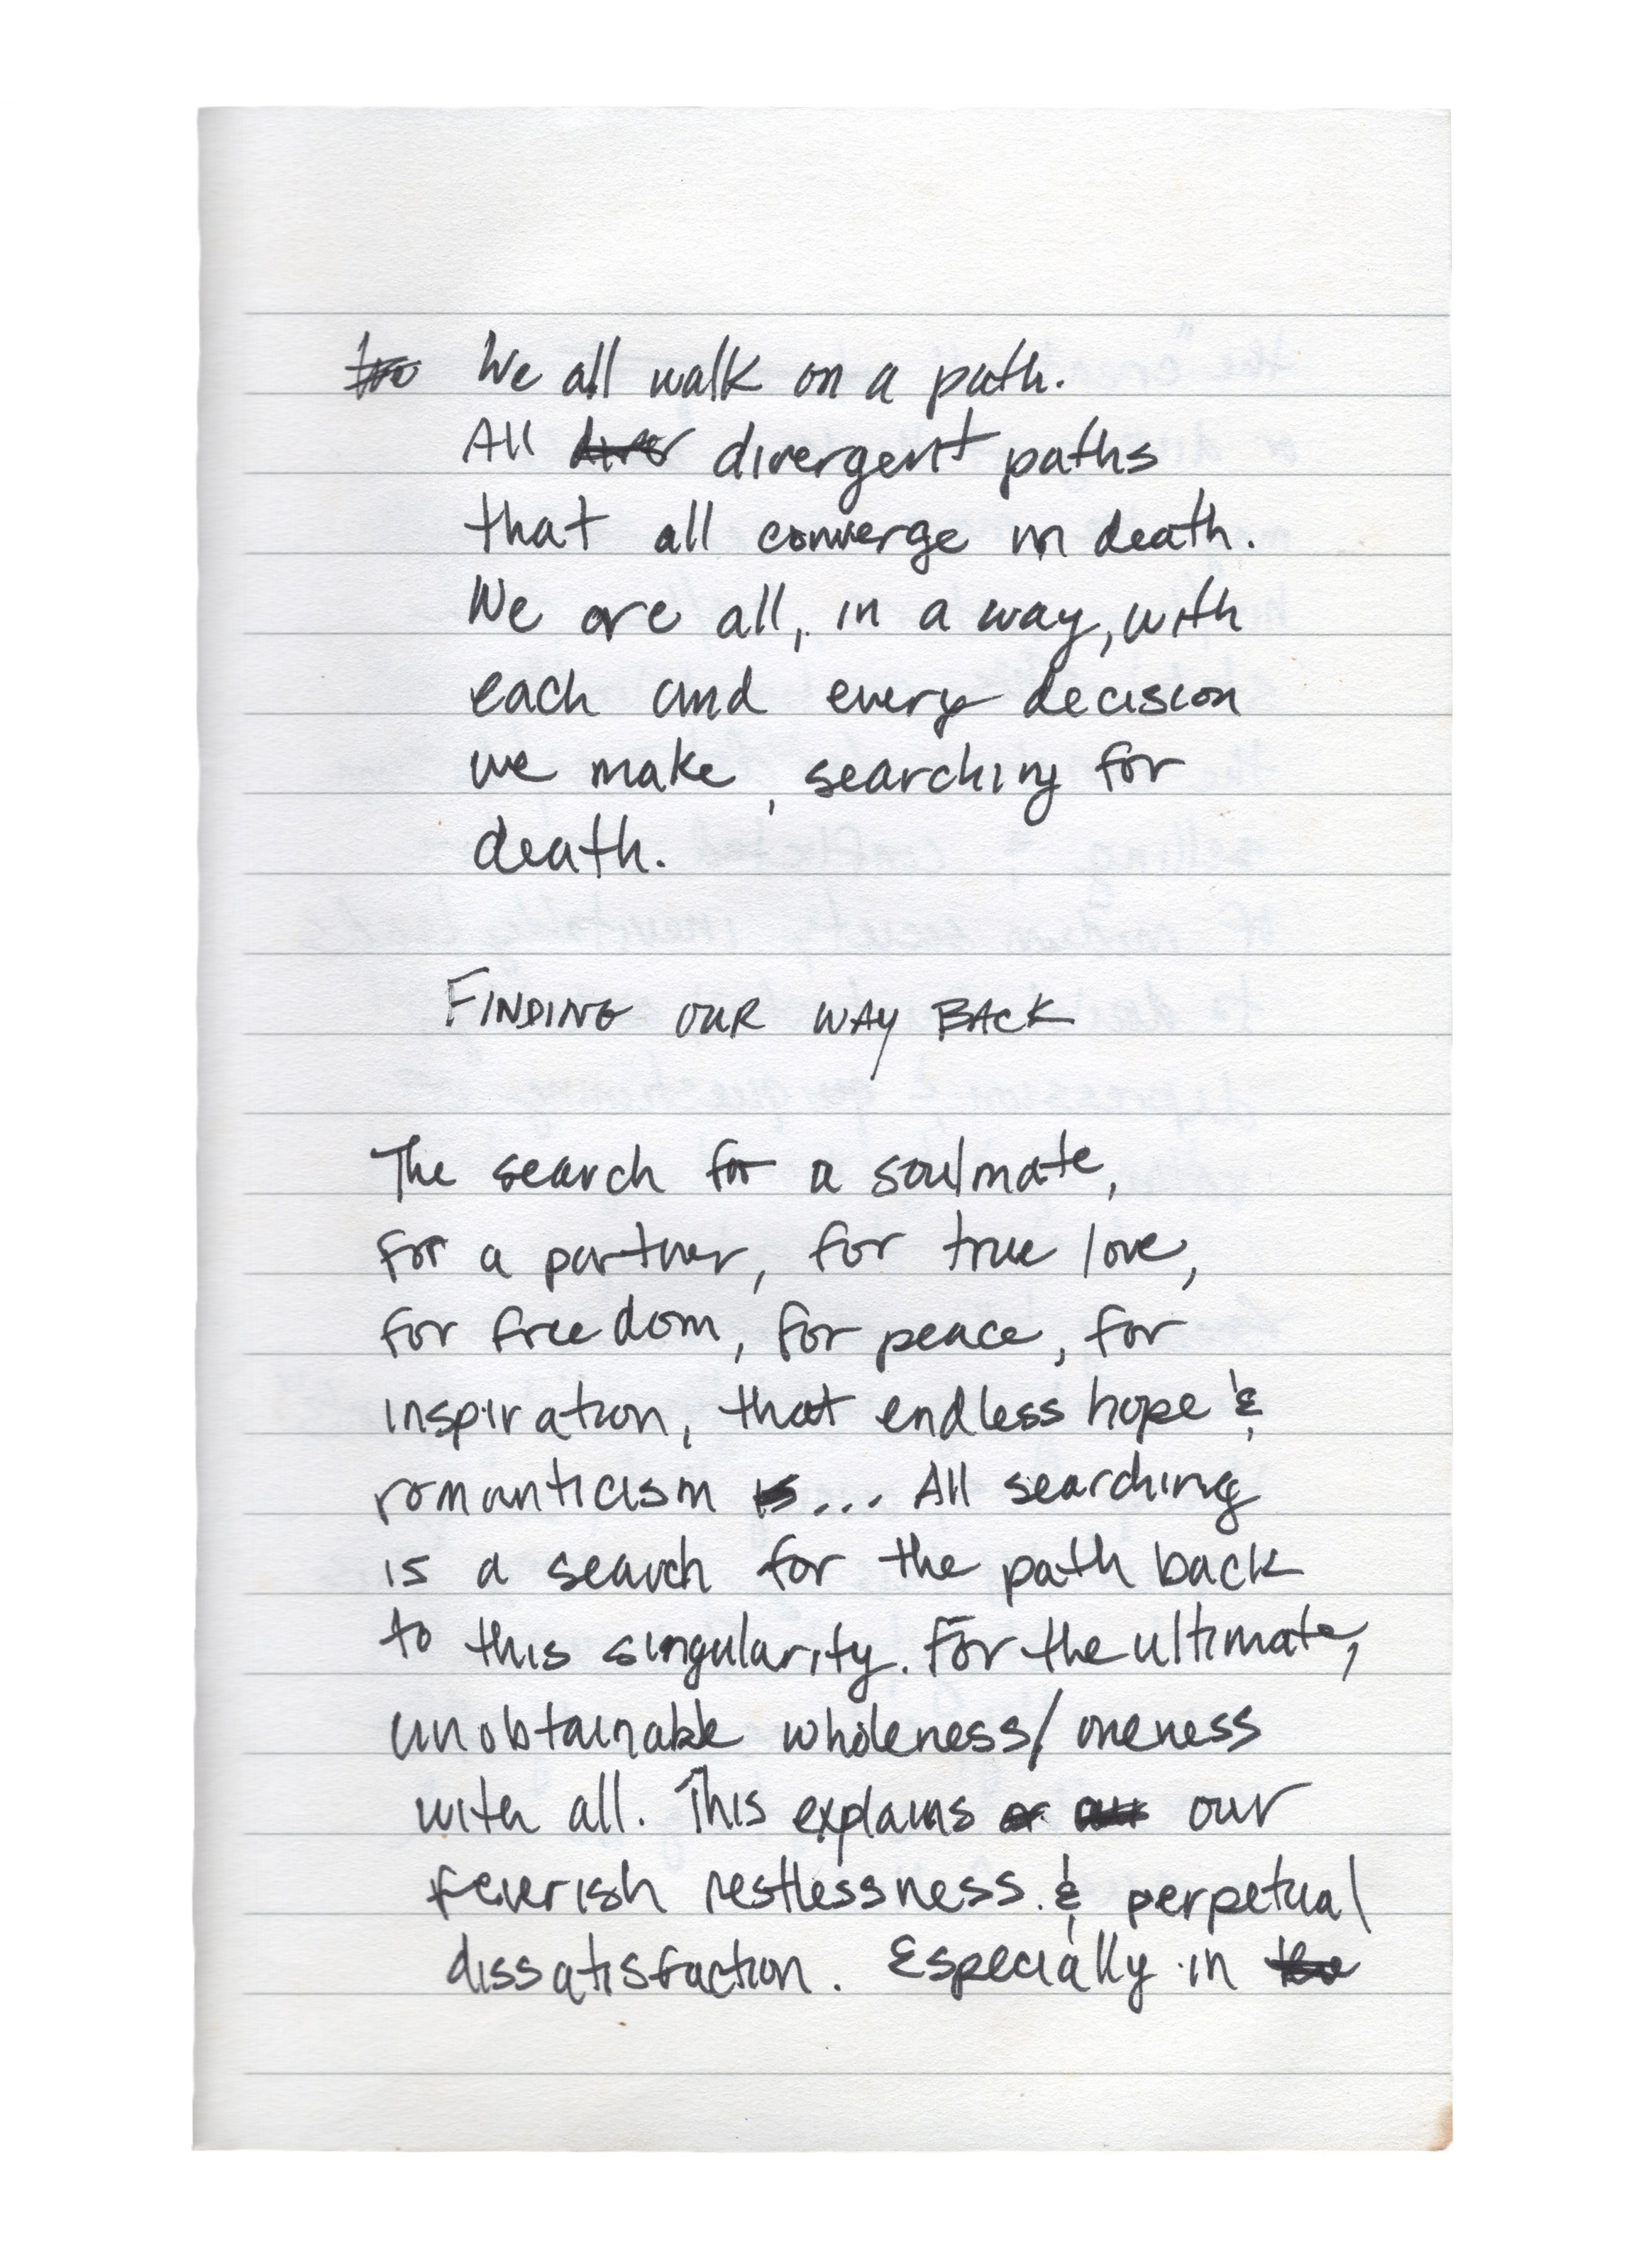 We all walk on a path.
All divergent paths
that all converge in death.
We are all, in a way, with
each and every decision
we make, searching for
death.
FINDING OUR WAY BACK
The search for a soulmate,
for a partner, for true love,
for freedom, for peace, for
inspiration, that endless hope &
romanticism is... All searching
is a search for the path back
to this singularity. For the ultimate,
unobtainable wholeness/oneness
with all. This explains our
feverish restlessness & perpetual
dissatisfaction. Especially in the